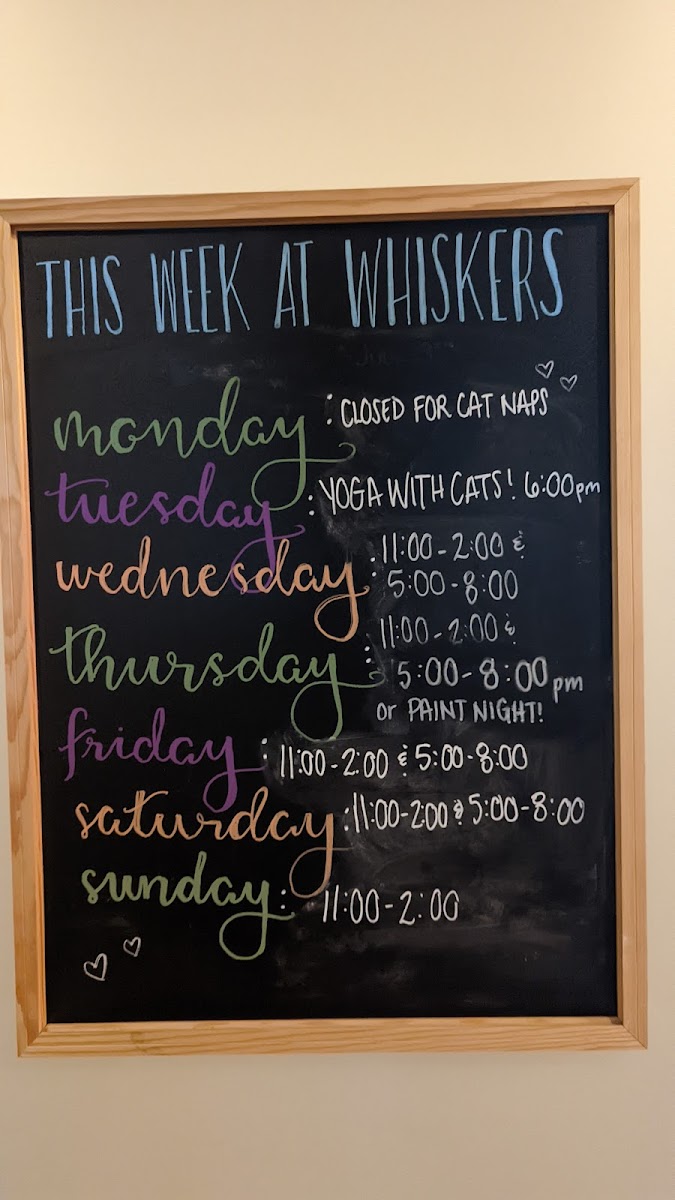 THIS WEEK AT WHISKERS
monday : CLOSED FOR CAT NAPS
tuesday : YOGA WITH CATS! 6:00pm
wednesday : 11:00-2:00 &
5:00-8:00
thursday : 11:00-2:00 &
5:00-8:00pm
or PAINT NIGHT!
friday : 11:00-2:00 & 5:00-8:00
saturday : 11:00-2:00 & 5:00-8:00
sunday : 11:00-2:00